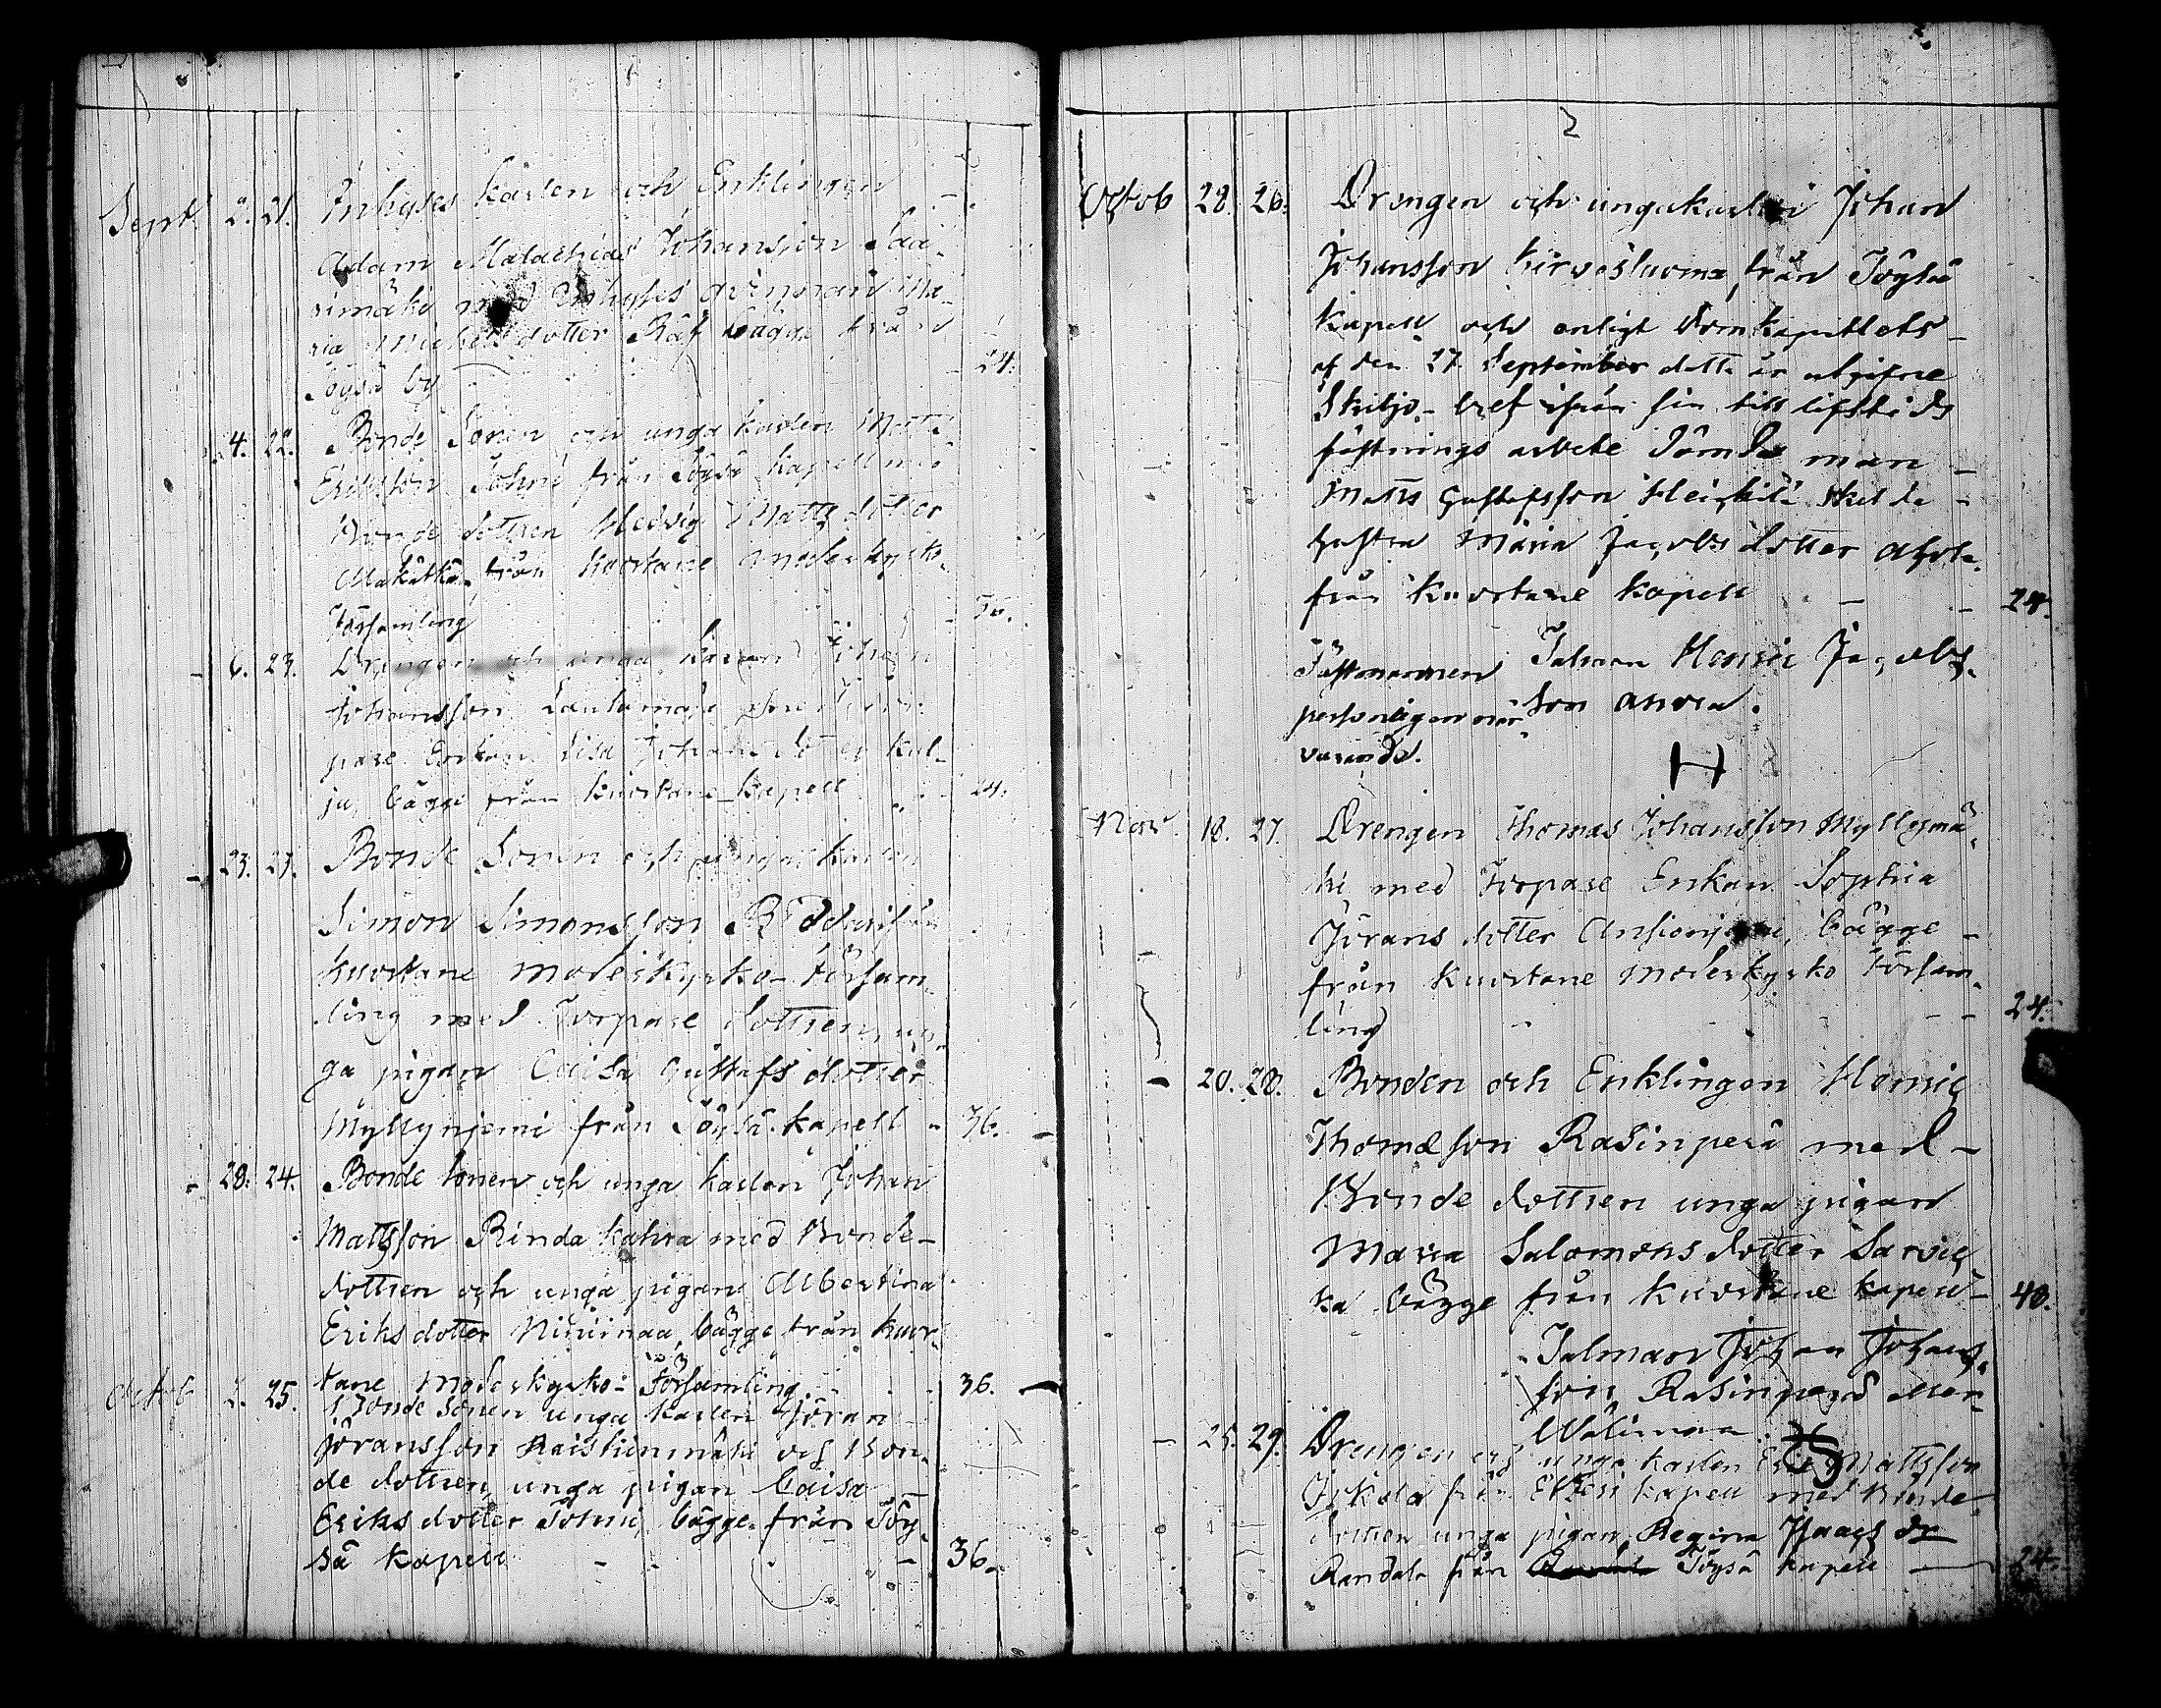 Sept. 2. 21. Inhyses karlen och Enklingen
Adam Malachias Johansson Saa-
rimäki med Inhyses qvinnan Ma-
ria Michels dotter Räf bägge från
Töysä by 24.
4. 22. Bonde Sonen och unga karlen Matts
Eriksson Tohni från Töysä kapell med
Bonde dottren Hedvig Matts dotter
från Kuortane moderkyrko-
församling
6. 23. Drengen och unga karlen Johan
Johansson Lautamäki
pare Enkan Lisa Johans dotter Kul-
ju, bägge från Kuortane kapell 24.
23. 23. Bonde Sonen och unga karlen
Simon Simonsson från
Kuortane moderkyrko-försam-
ling med Torpare dottren, un-
ga pigan Caisa Gustafs dotter
Myllyniemi från Töysä kapell - 36.
28. 24. Bonde sonen och unga karlen Johan
Mattsson Rinda kahra med Bonde-
dottren och unga pigan Albertina
Eriks dotter Niniimaa, bägge från Kuor-
tane Moderkyrko-Församling 36.
Octob 2. 25. Bonde sonen unga karlen Jöran
Jöransson Kaiskinmäki och Bon-
de dottren, unga pigan Caisa
Eriks dotter Tohni, bägge från Töy-
sä kapell 36.
Octob 28. 26. Drengen och unga karlen Johan
Johansson Kirvesluoma, från Töysä
kapell och enligt Domkapitlets
af den 27. September detta år utgifne
Skiljo-bref ifrån sin till lifstids
fästnings arbete dömde man
Matts Gustafsson Heikkilä skilda
hustru Maria Jacobs dotter Ahola
från Kuortane kapell 24.
Fästmannen Talman Henric Jacobs-
personligen när- son
varande.
H
Nov 18. 27. Drengen Thomas Johansson Myllymä-
ki med Torpare Enkan Sophia
Jörans dotter bägge
från Kuortane moderkyrko Försam-
ling 24.
20. 28. Bonden och Enklingen Henric
Thomasson Rasinperä med
Bonde dottren unga pigan
Maria Salomons dotter Sarvic-
ka bägge från Kuortane kapell 48.
Talman Johan Johans-
son Rasinperä
25. 29. Drengen och unga karlen Eric Mattsson
från Etseri kapell med Bonde
dottren unga pigan Regina Isaacs dr
Randala från Töysä kapell 24.